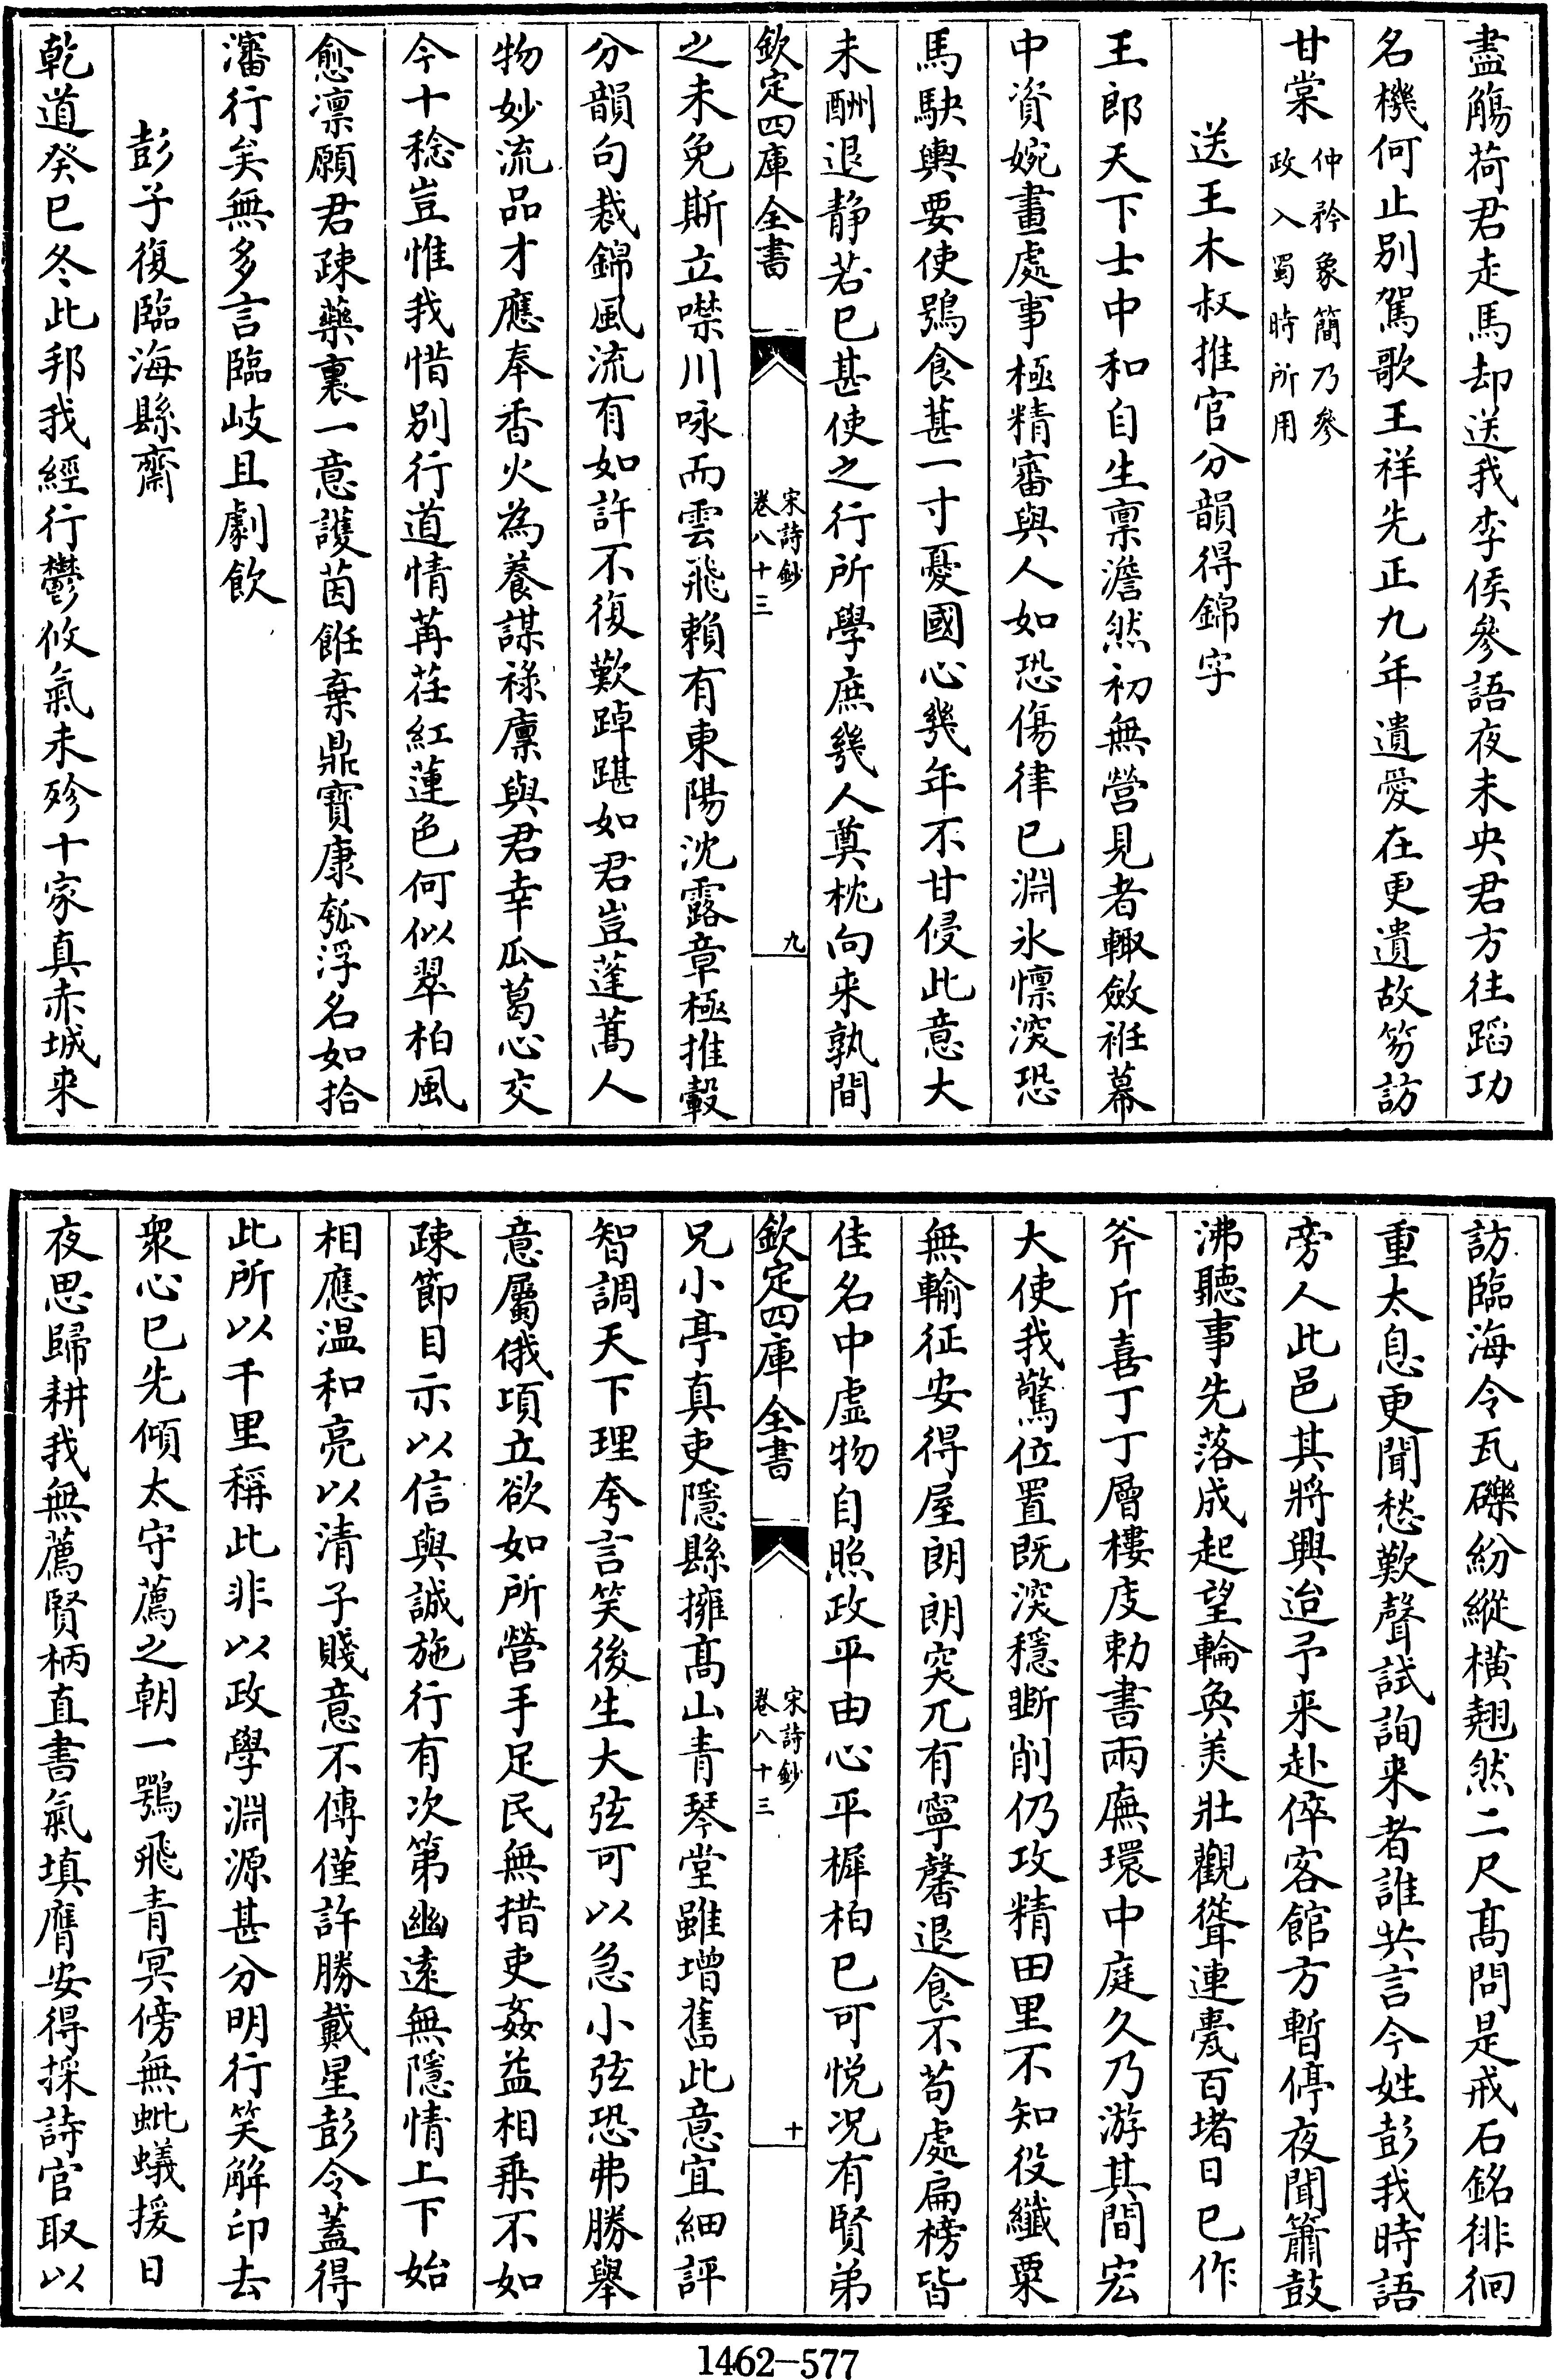 盡觴荷君走馬却送我李侯參語夜未央君方往蹈功
名機何止别駕歌王祥先正九年遺愛在更遺故笏訪
甘棠仲矜象簡乃參政入蜀時所用
送王木叔推官分韻得錦字
王郎天下士中和自生稟澹然初無營見者輙斂袵幕
中資婉畫處事極精審與人如恐傷律已淵氷懍深恐
馬駃輿要使鴞食葚一寸憂國心幾年不甘侵此意大
未酬退静若已甚使之行所學庶幾人奠枕向来孰間
欽定四庫全書
宋詩鈔
卷八十三
九
之未免斯立噤川咏而雲飛賴有東陽沈露章極推轂
分韻句裁錦風流有如許不復歎踔踸如君豈蓬蒿人
物妙流品才應奉香火為養謀祿廩與君幸瓜葛心交
今十稔豈惟我惜别行道情苒荏紅蓮色何似翠柏風
愈凛願君疎藥裏一意護茵餁棄鼎寳康瓠浮名如拾
瀋行矣無多言臨岐且劇飲
彭子復臨海縣齋
乾道癸巳冬此邦我經行鬱攸氣未殄十家真赤城来
訪臨海令瓦礫紛縱横翹然二尺髙問是戒石銘徘徊
重太息更聞愁歎聲試詢来者誰共言今姓彭我時語
旁人此邑其將興迨予来赴倅客館方暫停夜聞簫鼓
沸聽事先落成起望輪奐美壯觀聳連甍百堵日已作
斧斤喜丁丁層樓庋勅書兩廡環中庭久乃游其間宏
大使我驚位置既深穩斲削仍攻精田里不知役纎粟
無輸征安得屋朗朗突兀有寧馨退食不苟處扁榜皆
佳名中虚物自照政平由心平樨柏已可悦况有賢弟
欽定四庫全書
宋詩鈔
卷八十三
十
兄小亭真吏隱縣擁髙山青琴堂雖增舊此意宜細評
智調天下理夸言笑後生大弦可以急小弦恐弗勝舉
意屬俄項立欲如所營手足民無措吏姦益相乗不如
疎節目示以信與誠施行有次第幽遠無隱情上下始
相應温和亮以清子賤意不傳僅許勝戴星彭令蓋得
此所以千里稱此非以政學淵源甚分明行笑解印去
衆心已先傾太守薦之朝一鶚飛青冥傍無蚍蟻援日
夜思歸耕我無薦賢柄直書氣填膺安得採詩官取以
1462-577